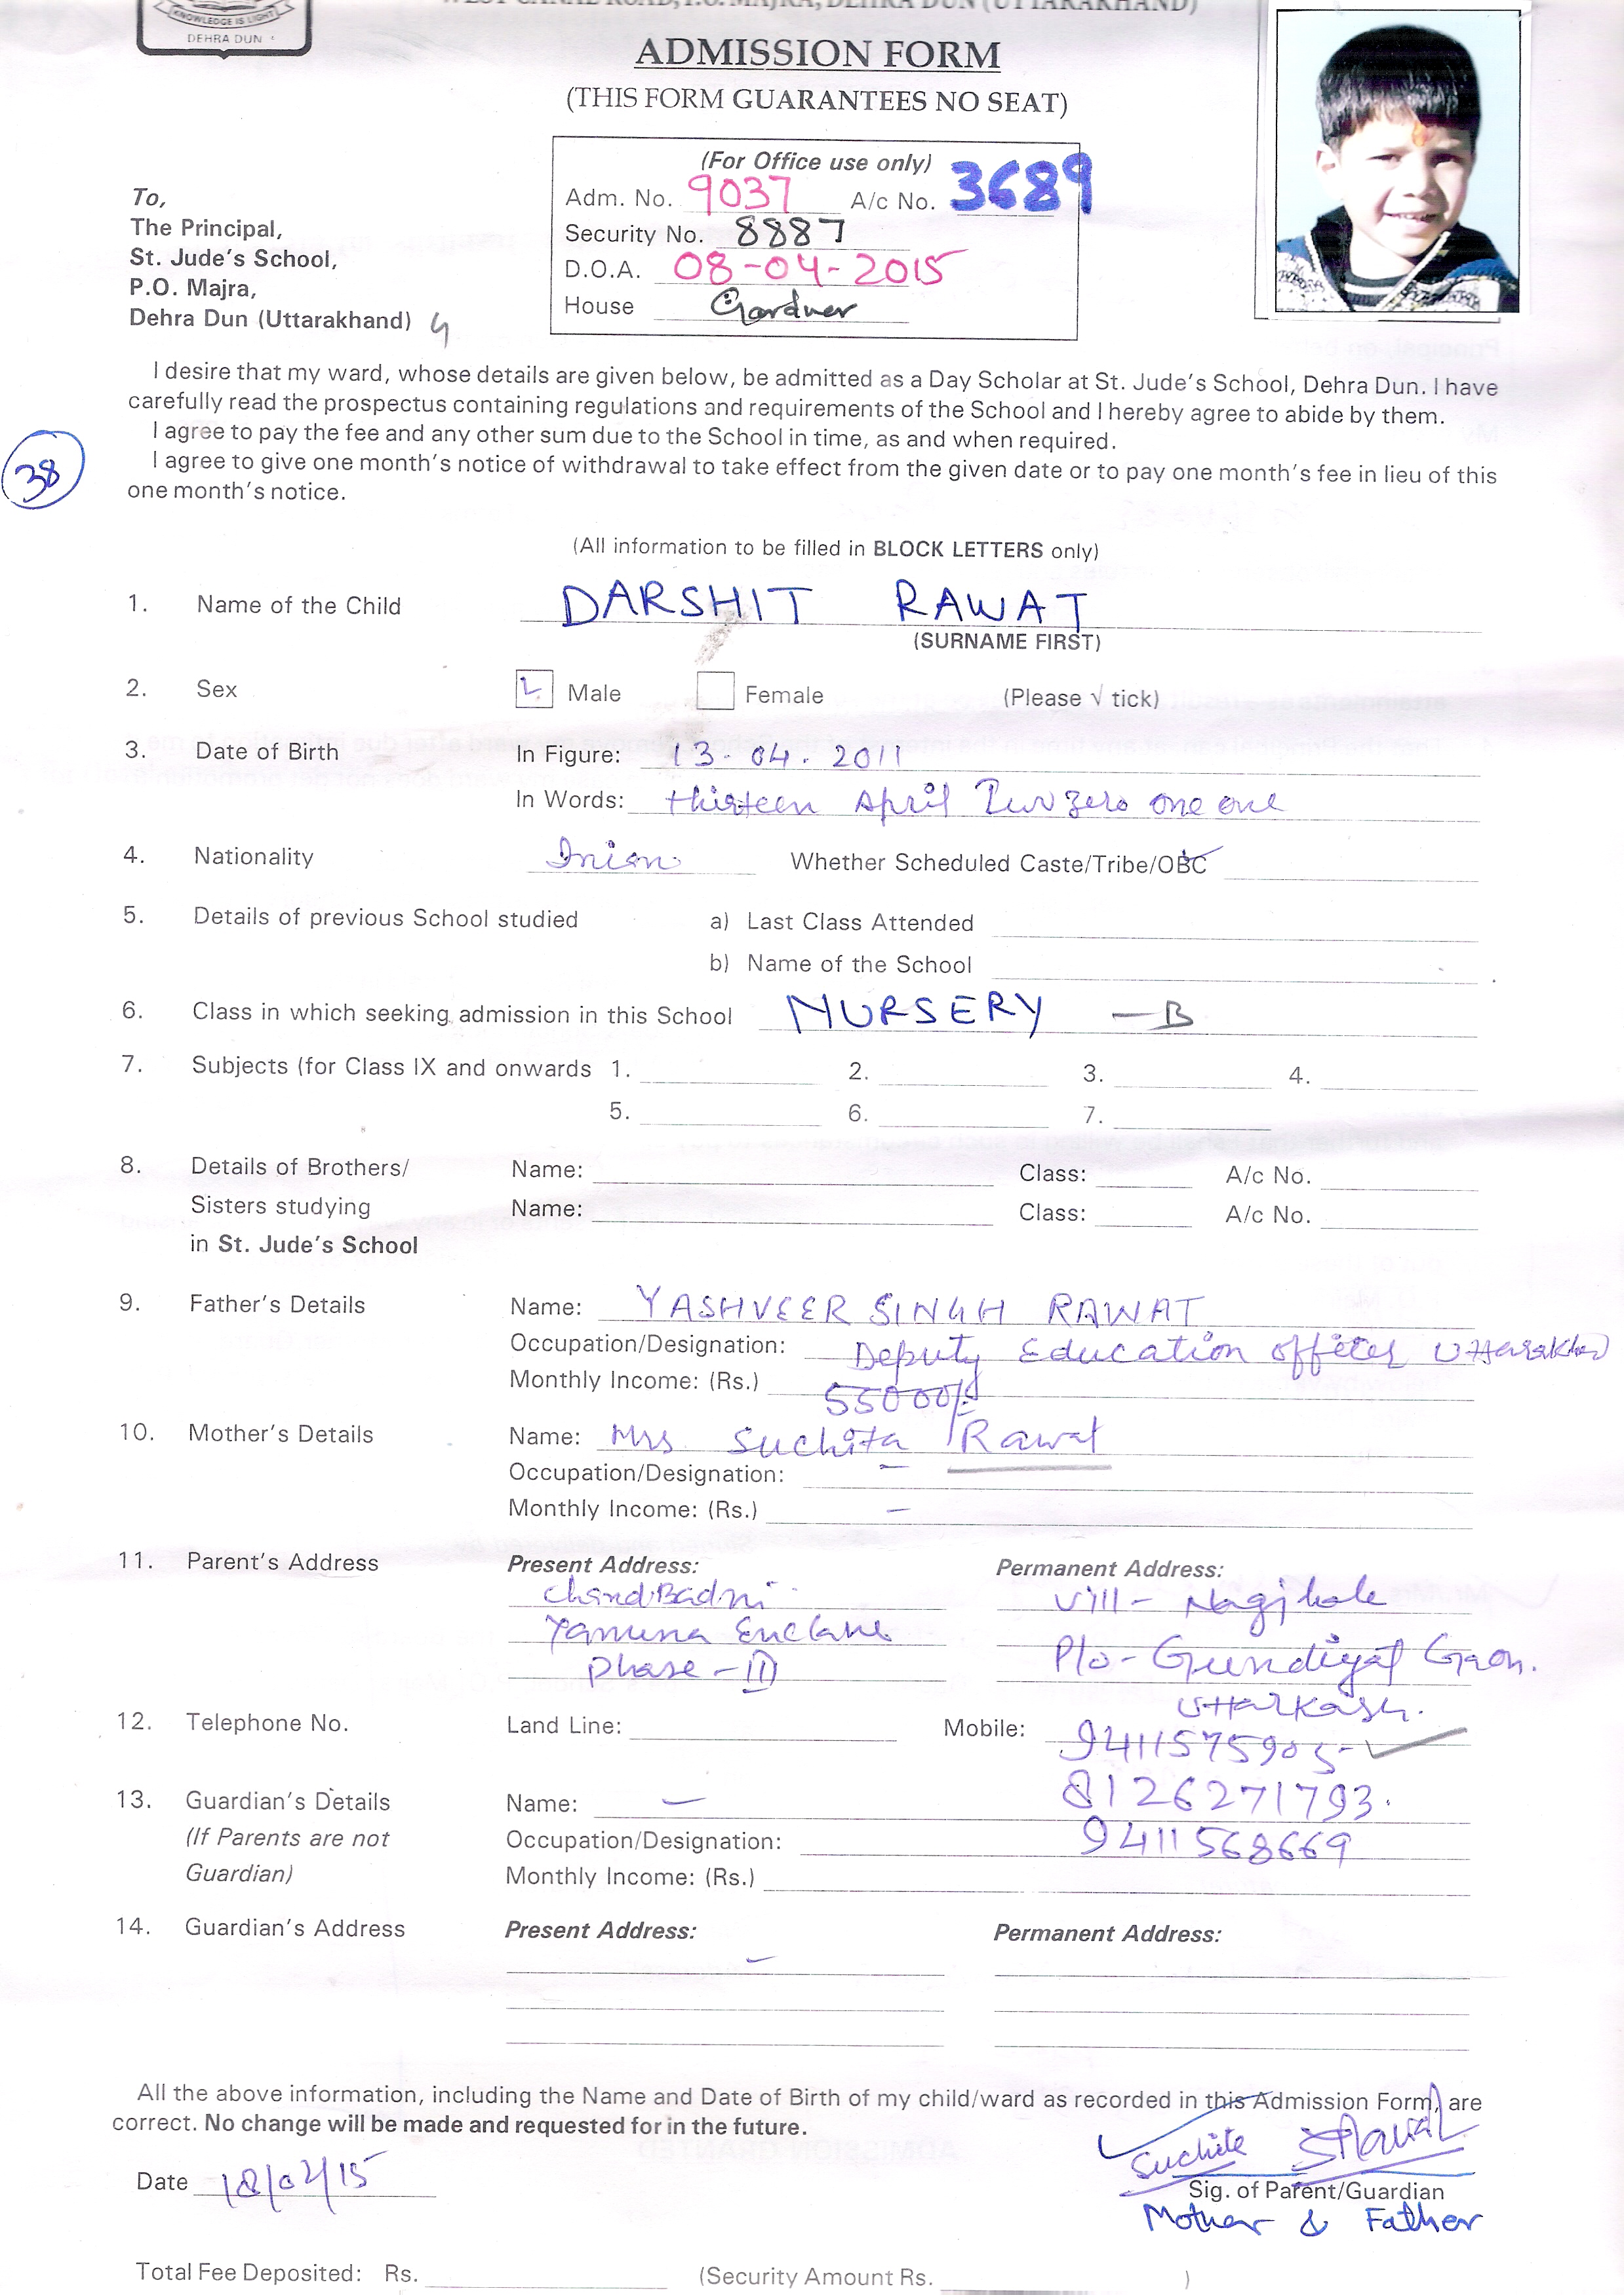 KNOWLEDGE IS LIGHT
DEHRA DUN
WEST CANAL ROAD, P.O. MAJRA, DEHRA DUN (UTTARAKHAND)
ADMISSION FORM
(THIS FORM GUARANTEES NO SEAT)
(For Office use only)
Adm. No. 9037 A/c No. 3689
Security No. 8887
D.O.A. 08-04-2015
House Gardner
To,
The Principal,
St. Jude's School,
P.O. Majra,
Dehra Dun (Uttarakhand)
I desire that my ward, whose details are given below, be admitted as a Day Scholar at St. Jude's School, Dehra Dun. I have
carefully read the prospectus containing regulations and requirements of the School and I hereby agree to abide by them.
I agree to pay the fee and any other sum due to the School in time, as and when required.
38
I agree to give one month's notice of withdrawal to take effect from the given date or to pay one month's fee in lieu of this
one month's notice.
(All information to be filled in BLOCK LETTERS only)
1. Name of the Child DARSHIT RAWAT
(SURNAME FIRST)
2. Sex Male Female (Please √ tick)
3. Date of Birth In Figure: 13-04.2011
In Words: thirteen April Two zero one one
4. Nationality Inion Whether Scheduled Caste/Tribe/OBC
5. Details of previous School studied a) Last Class Attended
b) Name of the School
6. Class in which seeking admission in this School NURSERY — B
7. Subjects (for Class IX and onwards 1. 2. 3. 4.
5. 6. 7.
8. Details of Brothers/ Name: Class: A/c No.
Sisters studying Name: Class: A/c No.
in St. Jude's School
9. Father's Details Name: YASHVEER SINGH RAWAT
Occupation/Designation: Deputy Education officer Uttarakhand
Monthly Income: (Rs.) 55000/-
10. Mother's Details Name: Mrs Suchita Rawat
Occupation/Designation: –
Monthly Income: (Rs.) –
11. Parent's Address Present Address: Permanent Address:
ChandiBadni Vill-
Yamuna Enclave P/o- Gundiyat Gaon.
Phase-III Uttarkashi.
12. Telephone No. Land Line: Mobile: 9411575905-
8126271793.
13. Guardian's Details Name: –
(If Parents are not Occupation/Designation: 9411568669
Guardian) Monthly Income: (Rs.)
14. Guardian's Address Present Address: Permanent Address:
–
All the above information, including the Name and Date of Birth of my child/ward as recorded in this Admission Form, are
correct. No change will be made and requested for in the future.
Suchita SRawat
Date 18/02/15
Sig. of Parent/Guardian
Mother & Father
Total Fee Deposited: Rs. (Security Amount Rs. )